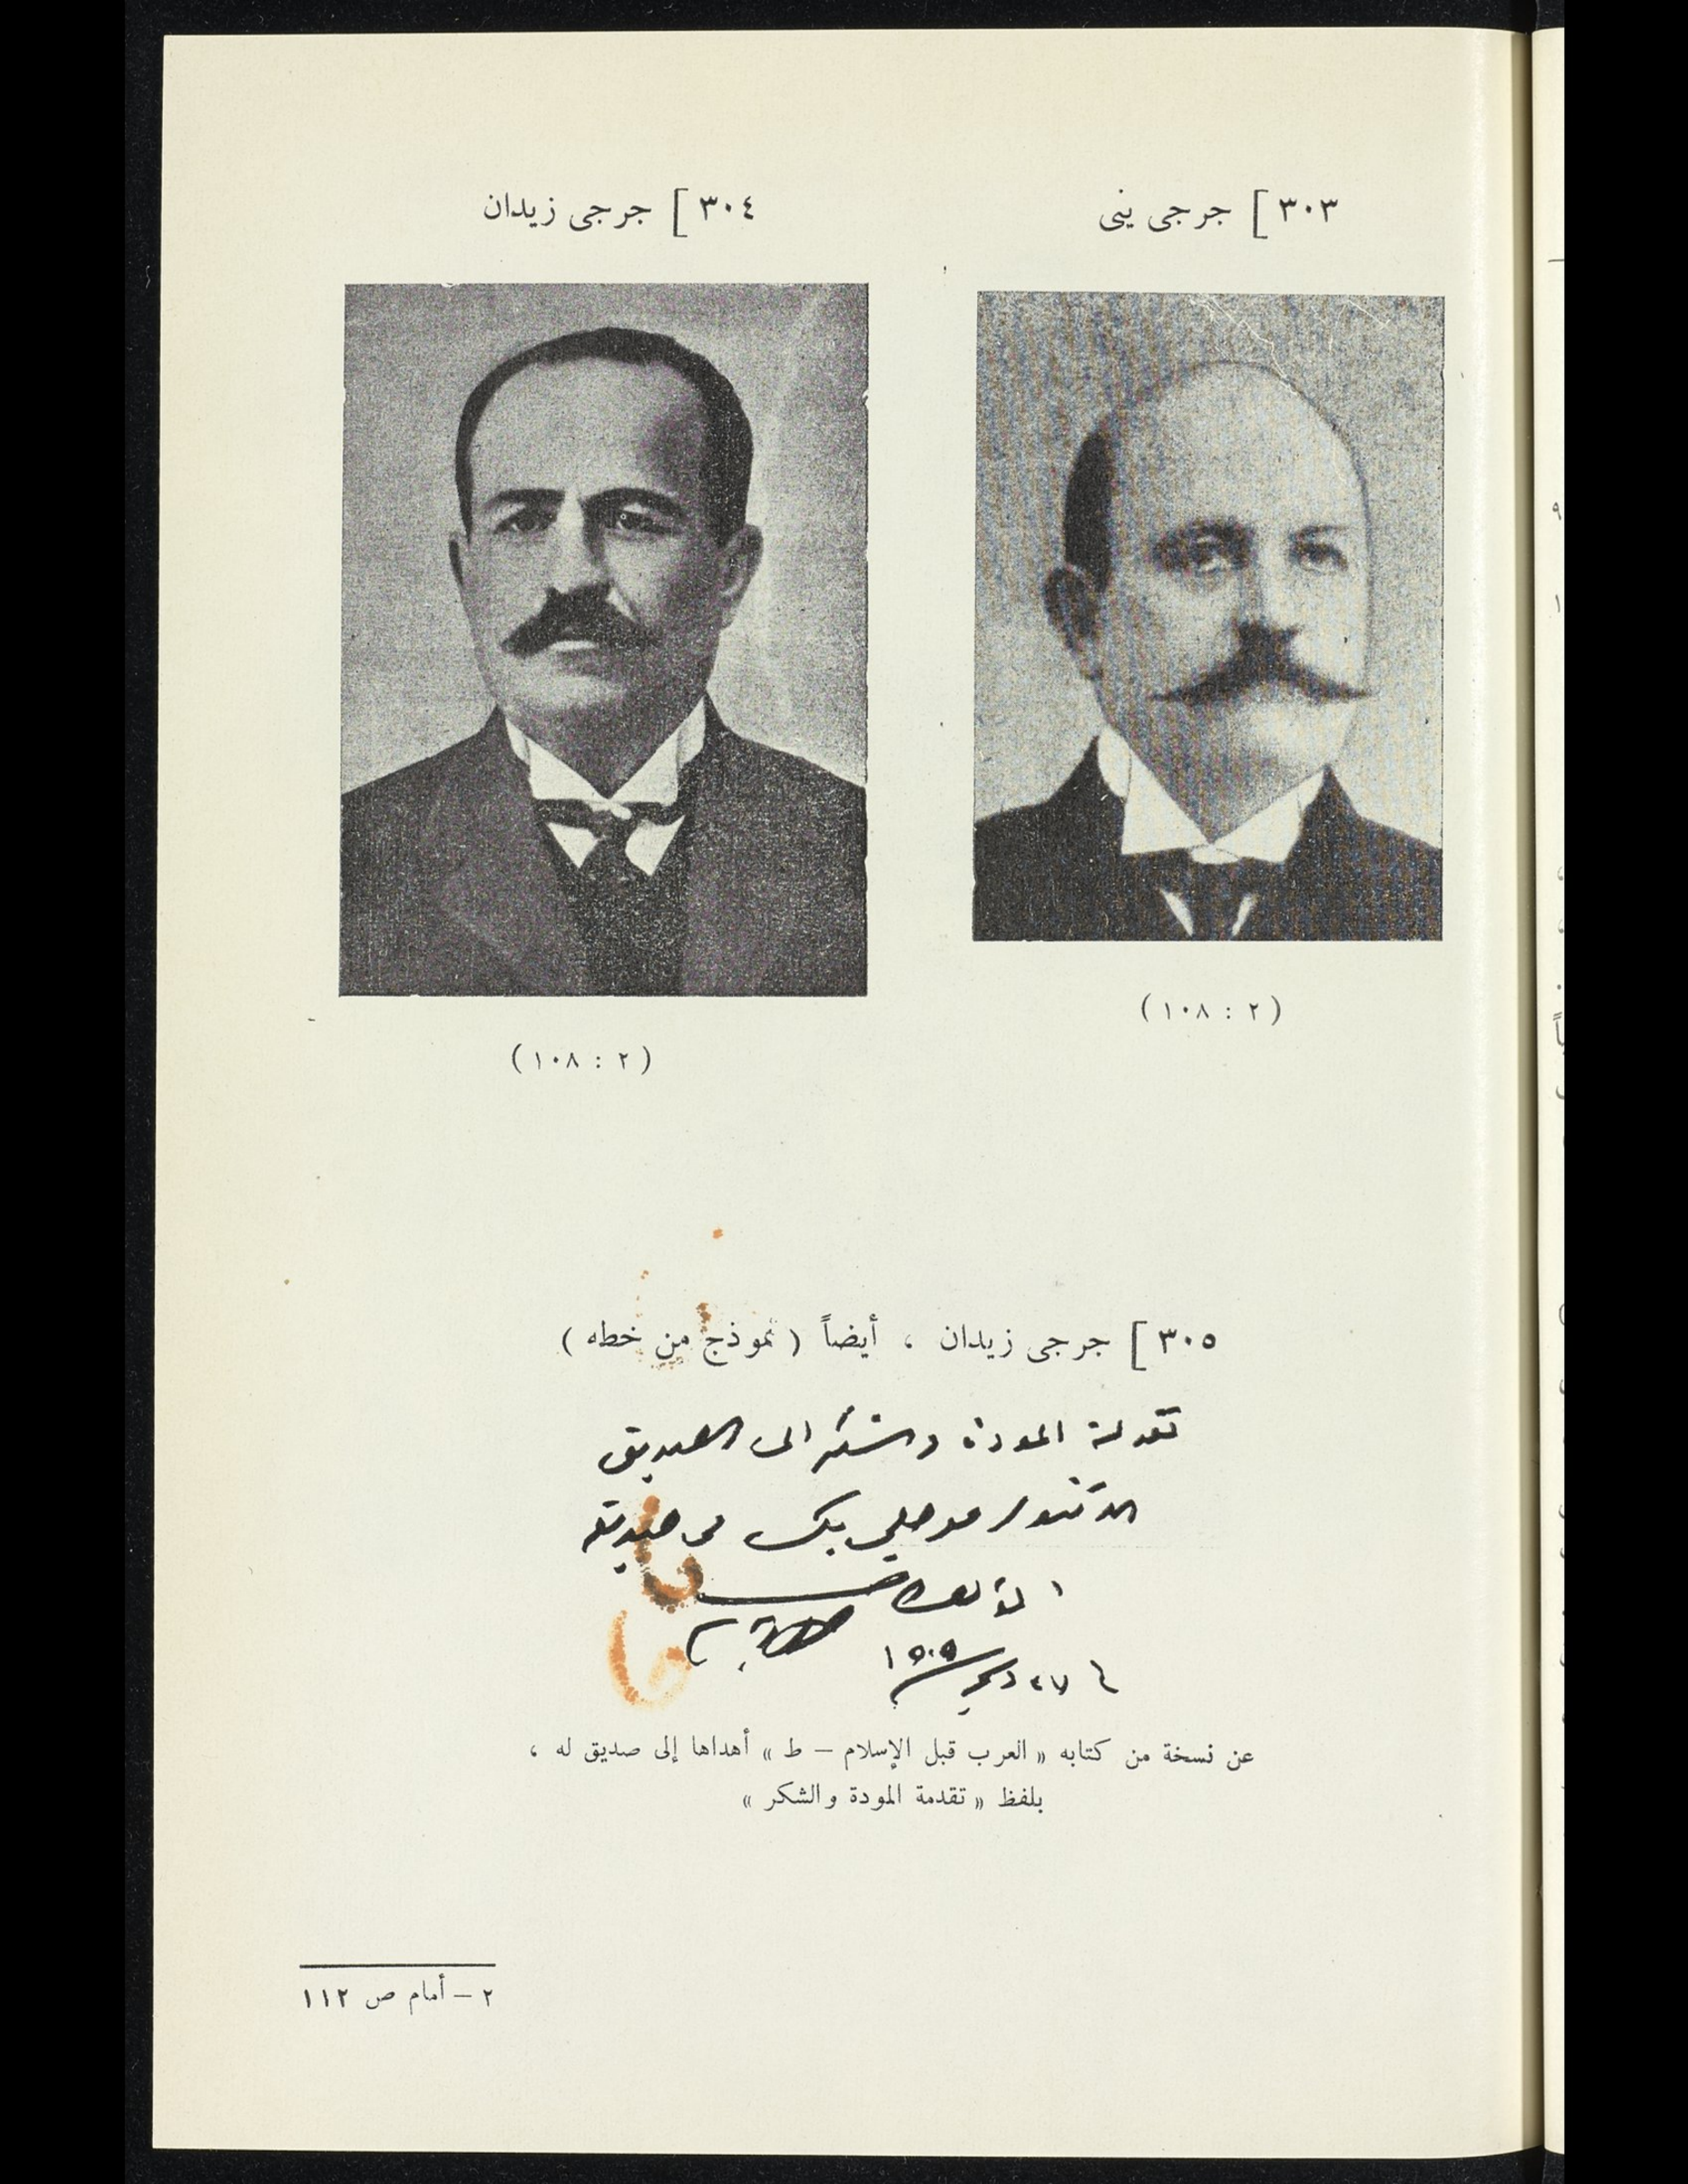 ٣٠٣ ] جرجي يني
٣٠٤ ] جرجي زيدان
( ٢ : ١٠٨ )
( ٢ : ١٠٨ )
٣٠٥ ] جرجي زيدان ، أيضاً ( نموذج من خطه )
تقدمة المودة والشكر الى الصديق
الدكتور حلمي بك من صديقه
المؤلف
٢٧ دسمبر ١٩٠٩
عن نسخة من كتابه « العرب قبل الإسلام – ط » أهداها إلى صديق له ،
بلفظ « تقدمة المودة والشكر »
٢ – أمام ص ١١٢